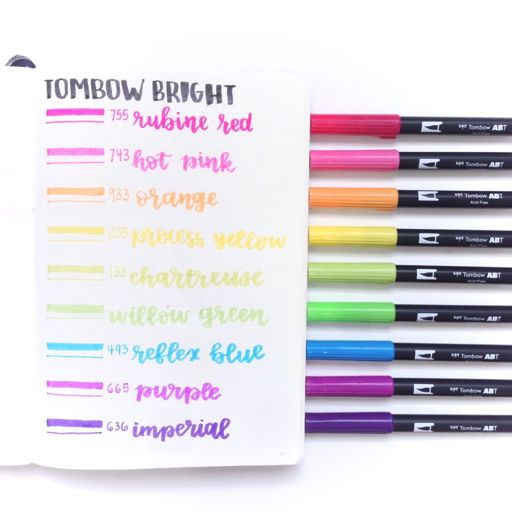 TOMBOW BRIGHT
755 rubine red
743 hot pink
933 orange
055 process yellow
133 chartreuse
willow green
493 reflex blue
665 purple
636 imperial
Tombow ABT
Tombow ABT
Tombow ABT
Acid Free
Tombow ABT
Tombow ABT
Acid Free
Tombow ABT
Tombow ABT
Tombow ABT
Tombow ABT